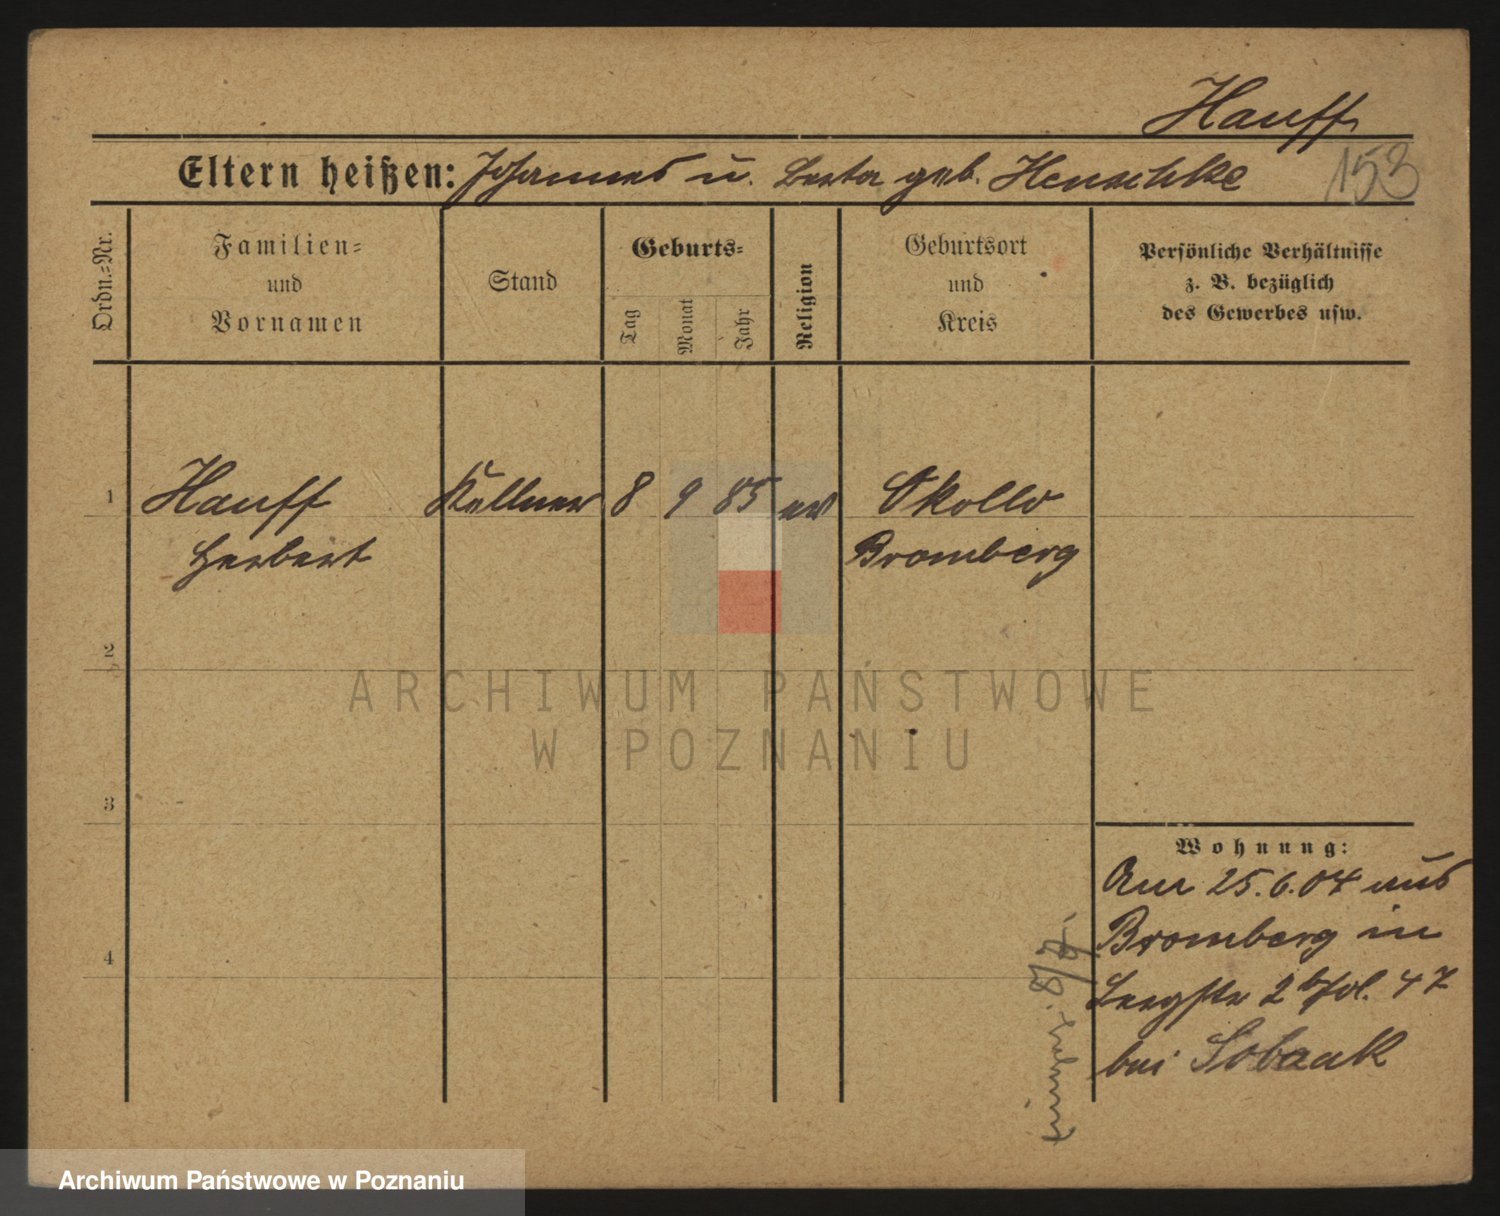 Hauff
Eltern heißen: Johannes u. Berta geb. Henschke
153
Ordn.=Nr.
Familien=
und
Vornamen
Stand
Geburts=
Tag
Monat
Jahr
Religion
Geburtsort
und
Kreis
Persönliche Verhältnisse
z. B. bezüglich
des Gewerbes usw.
1 Hauff Kellner 8 9 85 ev Okollo
Herbert Bromberg
2
3
4
Wohnung:
Am 25.6.04 aus
Bromberg in
Bergstr 2 b/Pol. 47
bei Sobzak
ARCHIWUM PAŃSTWOWE
W POZNANIU
Archiwum Państwowe w Poznaniu